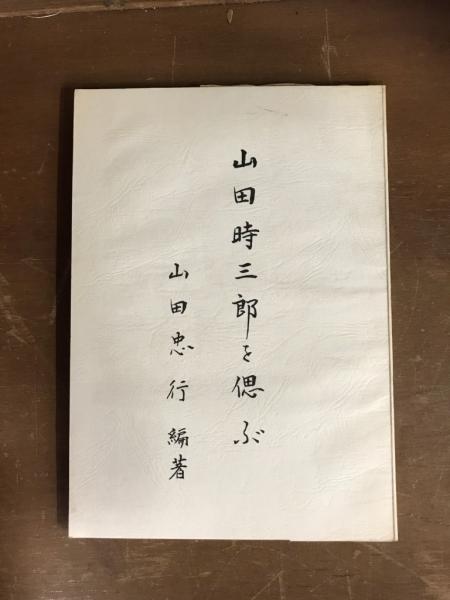 山田時三郎を偲ぶ
山田忠行編著